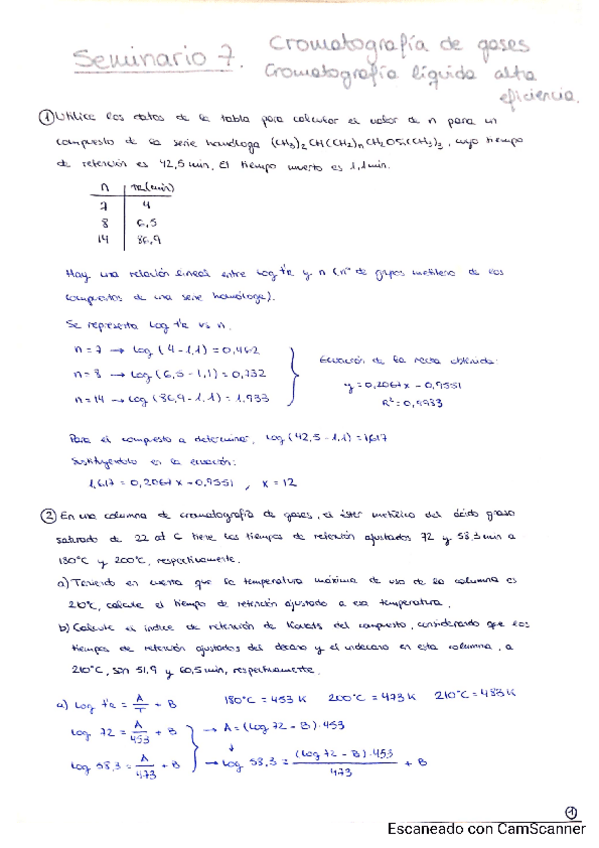 Seminario 7. Cromatografía de gases
Cromatografía líquida alta
eficiencia.
① Utilice los datos de la tabla para calcular el valor de n para un
compuesto de la serie homóloga (CH3)2CH(CH2)nCH2OSi(CH3)3, cuyo tiempo
de retención es 42,5 min. El tiempo muerto es 1,1 min.
n tR (min)
7 4
8 6,5
14 86,9
Hay una relación lineal entre log t'R y n (nº de grupos metileno de los
compuestos de una serie homóloga).
Se representa log t'R vs n.
n = 7 → log (4 - 1,1) = 0,462
n = 8 → log (6,5 - 1,1) = 0,732
n = 14 → log (86,9 - 1,1) = 1,933
Ecuación de la recta obtenida:
y = 0,2067x - 0,9551
R² = 0,9933
Para el compuesto a determinar, log (42,5 - 1,1) = 1,617
Sustituyéndolo en la ecuación:
1,617 = 0,2067x - 0,9551 , x = 12
② En una columna de cromatografía de gases, el éster metílico del ácido graso
saturado de 22 át C tiene los tiempos de retención ajustados 72 y 58,3 min a
180°C y 200°C, respectivamente.
a) Teniendo en cuenta que la temperatura máxima de uso de la columna es
210°C, calcule el tiempo de retención ajustado a esa temperatura.
b) Calcule el índice de retención de Kovats del compuesto, considerando que los
tiempos de retención ajustados del decano y el undecano en esta columna, a
210°C, son 51,9 y 60,5 min, respectivamente.
a) log t'R = A/T + B 180°C = 453 K 200°C = 473 K 210°C = 483 K
log 72 = A/453 + B → A = (log 72 - B) · 453
log 58,3 = A/473 + B → log 58,3 = (log 72 - B) · 453/473 + B
①
Escaneado con CamScanner